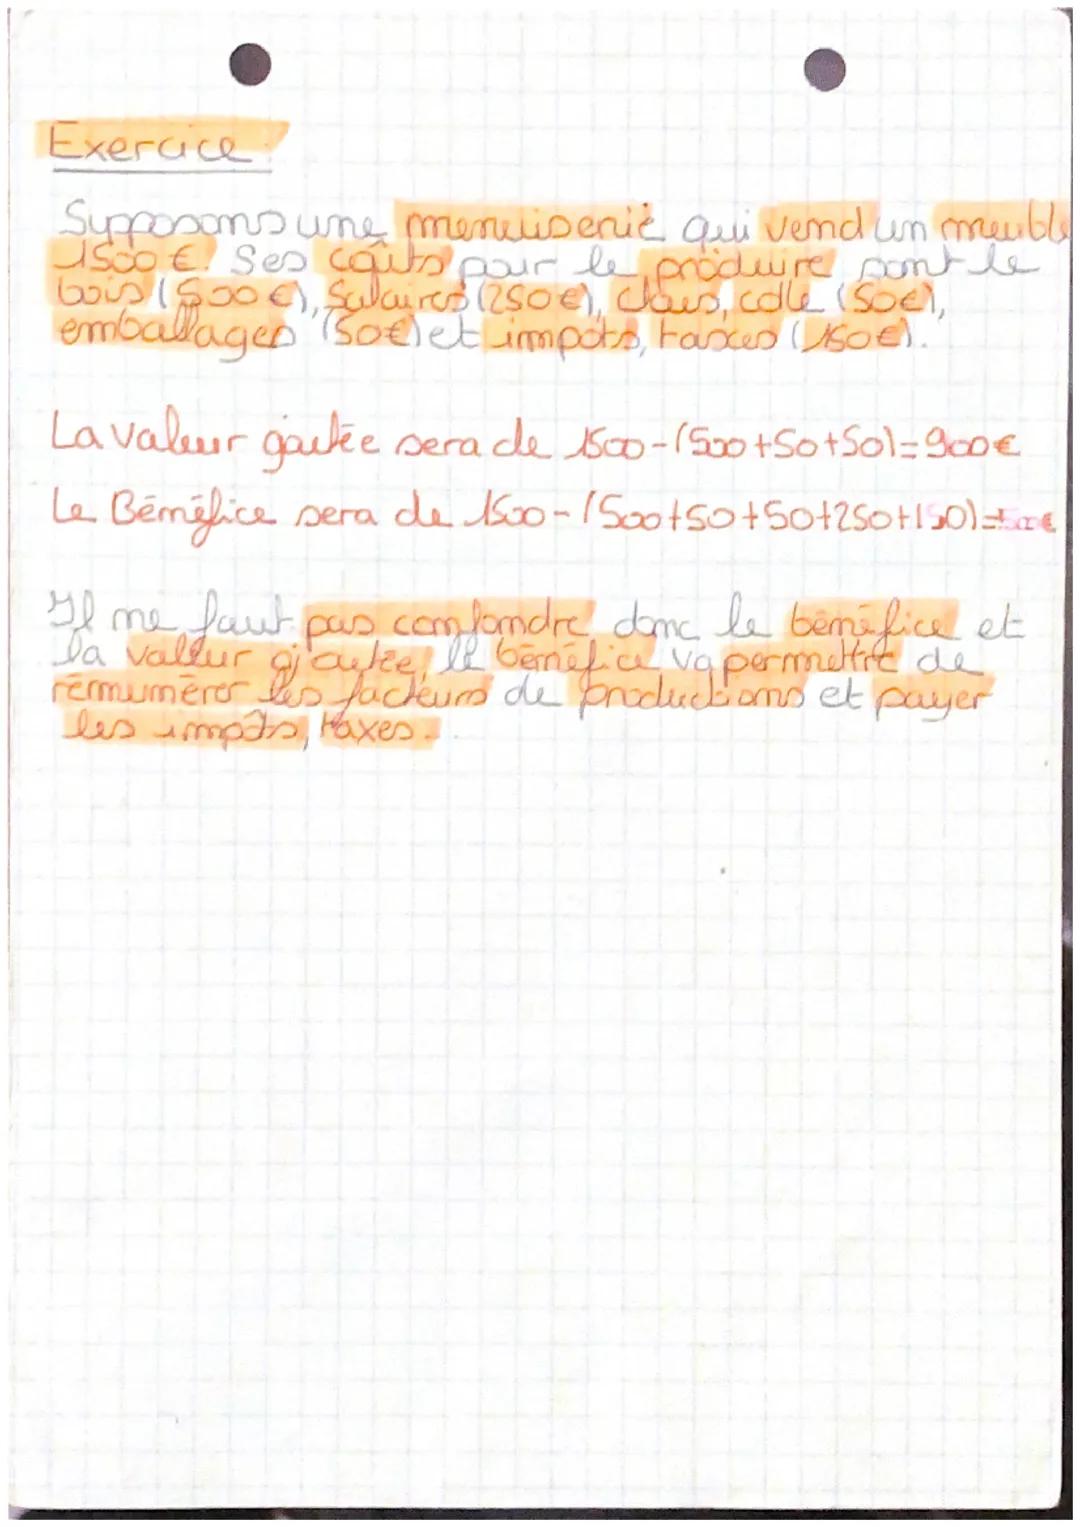 Exercice :
Supposons une menuiserie qui vend un meuble
1500 €. Ses coûts pour le produire sont le
bois (500 €), Salaires (250€), clous, colle (50€),
emballages (50€) et impôts, taxes (150€).
La valeur ajoutée sera de 1500-(500+50+50)=900€
Le Bénéfice sera de 1500-(500+50+50+250+150)=500€
Il ne faut pas confondre donc le bénéfice et
la valeur ajoutée, le bénéfice va permettre de
rémunérer les facteurs de productions et payer
les impôts, taxes.